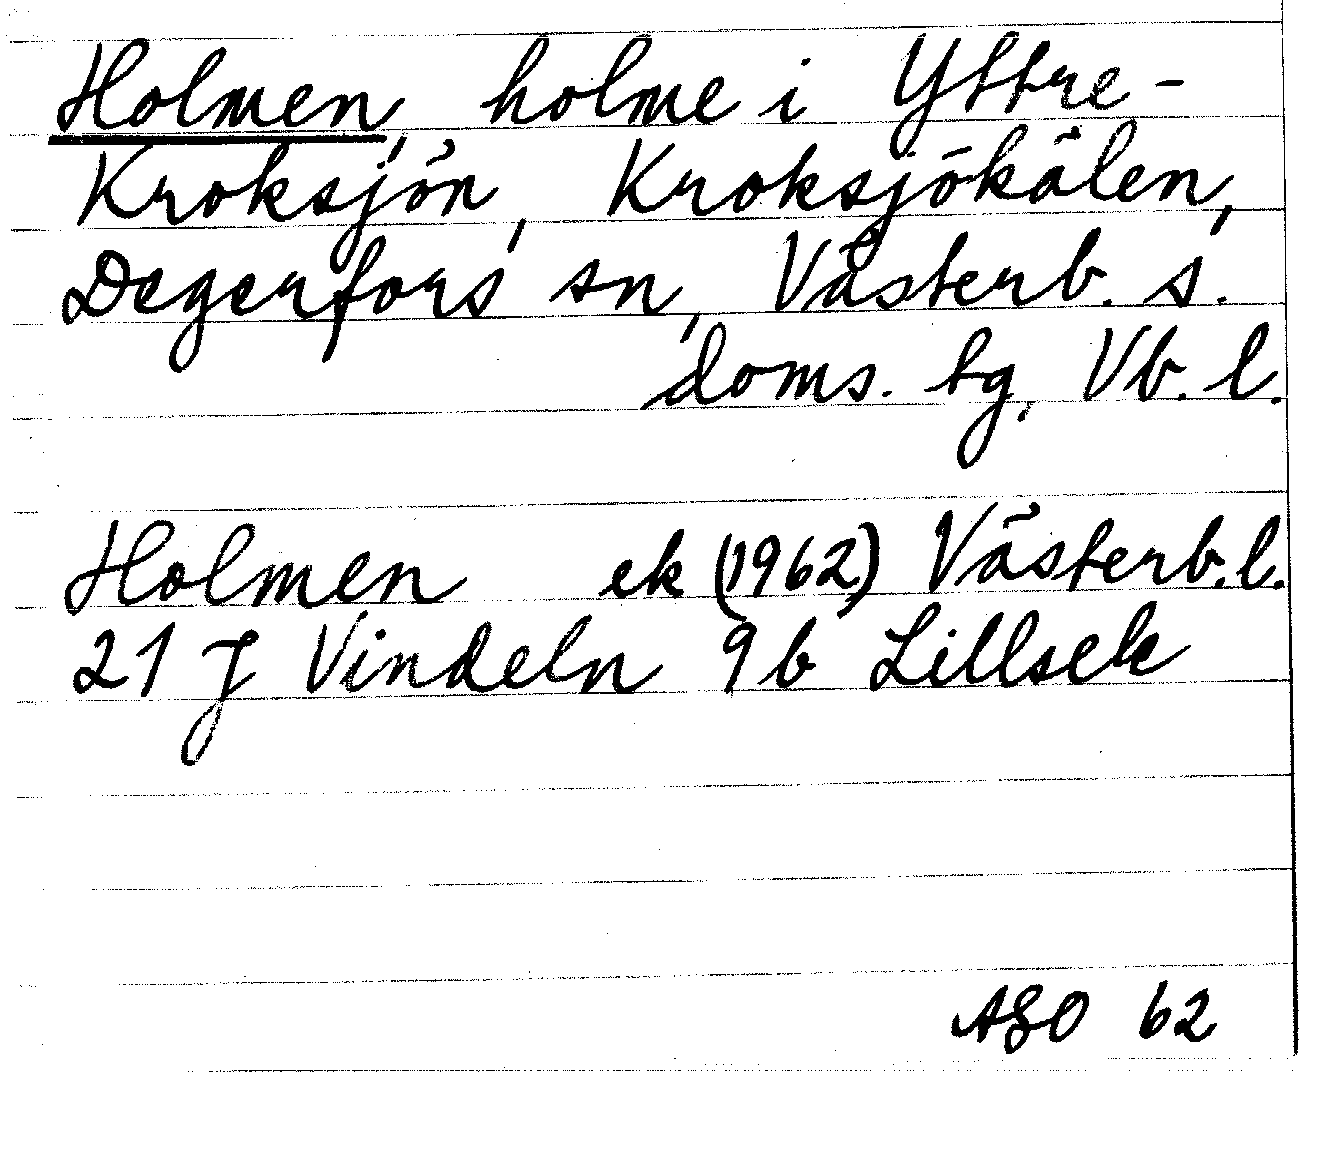 Holmen, holme i Yttre-
Kroksjön, Kroksjökälen,
Degerfors sn, Västerb. s.
doms. tg, Vb. l.
Holmen ek (1962) Västerb.l.
21 J Vindeln 9b Lillsele
ASO 62